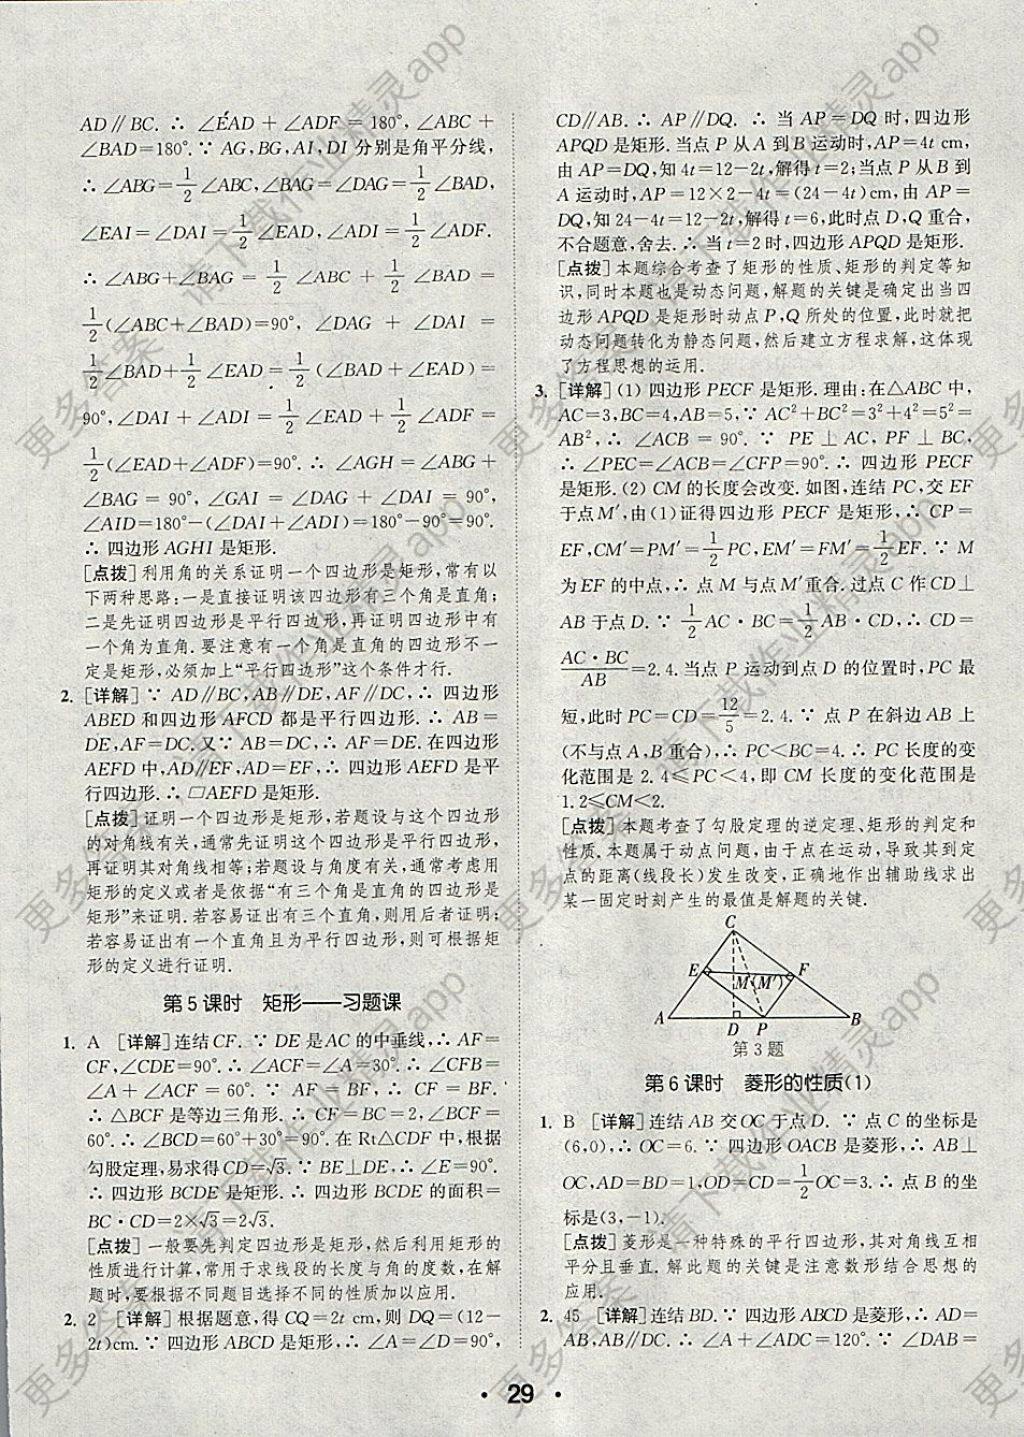 AD∥BC.∴ ∠EAD + ∠ADF = 180°, ∠ABC +
∠BAD=180°.∵ AG,BG,AI,DI 分别是角平分线,
∴ ∠ABG=1/2∠ABC,∠BAG=∠DAG=1/2∠BAD,
∠EAI=∠DAI=1/2∠EAD,∠ADI=1/2∠ADF.
∴ ∠ABG+∠BAG=1/2∠ABC+1/2∠BAD=
1/2(∠ABC+∠BAD)=90°, ∠DAG + ∠DAI =
1/2∠BAD+1/2∠EAD=1/2(∠BAD+∠EAD)=
90°,∠DAI+∠ADI=1/2∠EAD+1/2∠ADF=
1/2(∠EAD+∠ADF)=90°.∴ ∠AGH=∠ABG+
∠BAG = 90°, ∠GAI = ∠DAG + ∠DAI = 90°,
∠AID=180°-(∠DAI+∠ADI)=180°-90°=90°.
∴ 四边形 AGHI 是矩形.
[点拨] 利用角的关系证明一个四边形是矩形,常有以
下两种思路:一是直接证明该四边形有三个角是直角;
二是先证明四边形是平行四边形,再证明四边形中有
一个角为直角.要注意有一个角是直角的四边形不一
定是矩形,必须加上“平行四边形”这个条件才行.
2. [详解] ∵ AD∥BC,AB∥DE,AF∥DC,∴ 四边形
ABED 和四边形 AFCD 都是平行四边形.∴ AB=
DE,AF=DC.又∵ AB=DC,∴ AF=DE.在四边形
AEFD 中,AD∥EF,AD=EF,∴ 四边形 AEFD 是平
行四边形.∴ □AEFD 是矩形.
[点拨] 证明一个四边形是矩形,若题设与这个四边形
的对角线有关,通常先证明这个四边形是平行四边形,
再证明其对角线相等;若题设与角度有关,通常考虑用
矩形的定义或者是依据“有三个角是直角的四边形是
矩形”来证明.若容易证出有三个直角,则用后者证明;
若容易证出有一个直角且为平行四边形,则可根据矩
形的定义进行证明.
第 5 课时 矩形——习题课
1. A [详解] 连结 CF.∵ DE 是 AC 的中垂线,∴ AF=
CF,∠CDE=90°.∴ ∠ACF=∠A=30°.∴ ∠CFB=
∠A + ∠ACF = 60°. ∵ AF = BF, ∴ CF = BF.
∴ △BCF 是等边三角形.∴ CF=BC=2,∠BCF=
60°.∴ ∠BCD=60°+30°=90°.在 Rt△CDF 中,根据
勾股定理,易求得 CD=√3.∵ BE⊥DE,∴ ∠E=90°.
∴ 四边形 BCDE 是矩形.∴ 矩形 BCDE 的面积=
BC·CD=2×√3=2√3.
[点拨] 一般要先判定四边形是矩形,然后利用矩形的
性质进行计算,常用于求线段的长度与角的度数,在解
题时,要根据不同题目选择不同的性质加以应用.
2. 2 [详解] 根据题意,得 CQ=2t cm,则 DQ=(12-
2t)cm.∵ 四边形 ABCD 是矩形,∴ ∠A=∠D=90°,
CD∥AB.∴ AP∥DQ. ∴ 当 AP=DQ 时,四边形
APQD 是矩形.当点 P 从 A 到 B 运动时,AP=4t cm,
由 AP=DQ,知 4t=12-2t,解得 t=2;当点 P 从 B 到
A 运动时,AP=12×2-4t=(24-4t)cm,由 AP=
DQ,知 24-4t=12-2t,解得 t=6,此时点 D,Q 重合,
不合题意,舍去.∴ 当 t=2 时,四边形 APQD 是矩形.
[点拨] 本题综合考查了矩形的性质、矩形的判定等知
识,同时本题也是动态问题,解题的关键是确定出当四
边形 APQD 是矩形时动点 P,Q 所处的位置,此时就把
动态问题转化为静态问题,然后建立方程求解,这体现
了方程思想的运用.
3. [详解] (1) 四边形 PECF 是矩形.理由:在△ABC 中,
AC=3,BC=4,AB=5,∵ AC²+BC²=3²+4²=5²=
AB²,∴ ∠ACB = 90°. ∵ PE ⊥ AC, PF ⊥ BC,
∴ ∠PEC=∠ACB=∠CFP=90°.∴ 四边形 PECF
是矩形.(2) CM 的长度会改变.如图,连结 PC,交 EF
于点 M′,由(1)证得四边形 PECF 是矩形,∴ CP=
EF,CM′=PM′=1/2PC,EM′=FM′=1/2EF.∵ M
为 EF 的中点,∴ 点 M 与点 M′重合.过点 C 作 CD⊥
AB 于点 D.∵ 1/2AC·BC=1/2AB·CD,∴ CD=
AC·BC/AB=2.4.当点 P 运动到点 D 的位置时,PC 最
短,此时 PC=CD=12/5=2.4.∵ 点 P 在斜边 AB 上
(不与点 A,B 重合),∴ PC<BC=4.∴ PC 长度的变
化范围是 2.4≤PC<4,即 CM 长度的变化范围是
1.2≤CM<2.
[点拨] 本题考查了勾股定理的逆定理、矩形的判定和
性质.本题属于动点问题,由于点在运动,导致其到定
点的距离(线段长)发生改变,正确地作出辅助线求出
某一固定时刻产生的最值是解题的关键.
C
E
M(M′)
F
A
D
P
B
第 3 题
第 6 课时 菱形的性质(1)
1. B [详解] 连结 AB 交 OC 于点 D. ∵ 点 C 的坐标是
(6,0),∴ OC=6.∵ 四边形 OACB 是菱形,∴ AB⊥
OC,AD=BD=1,OD=CD=1/2OC=3.∴ 点 B 的坐
标是(3,-1).
[点拨] 菱形是一种特殊的平行四边形,其对角线互相
平分且垂直.解此题的关键是注意数形结合思想的
应用.
2. 45 [详解] 连结 BD.∵ 四边形 ABCD 是菱形,∴ AD=
AB,AB∥DC.∴ ∠A+∠ADC=120°.∵ ∠DAB=
· 29 ·
更多答案 请下载作业精灵app
更多答案 请下载作业精灵app
更多答案 请下载作业精灵app
更多答案 请下载作业精灵app
更多答案 请下载作业精灵app
更多答案 请下载作业精灵app